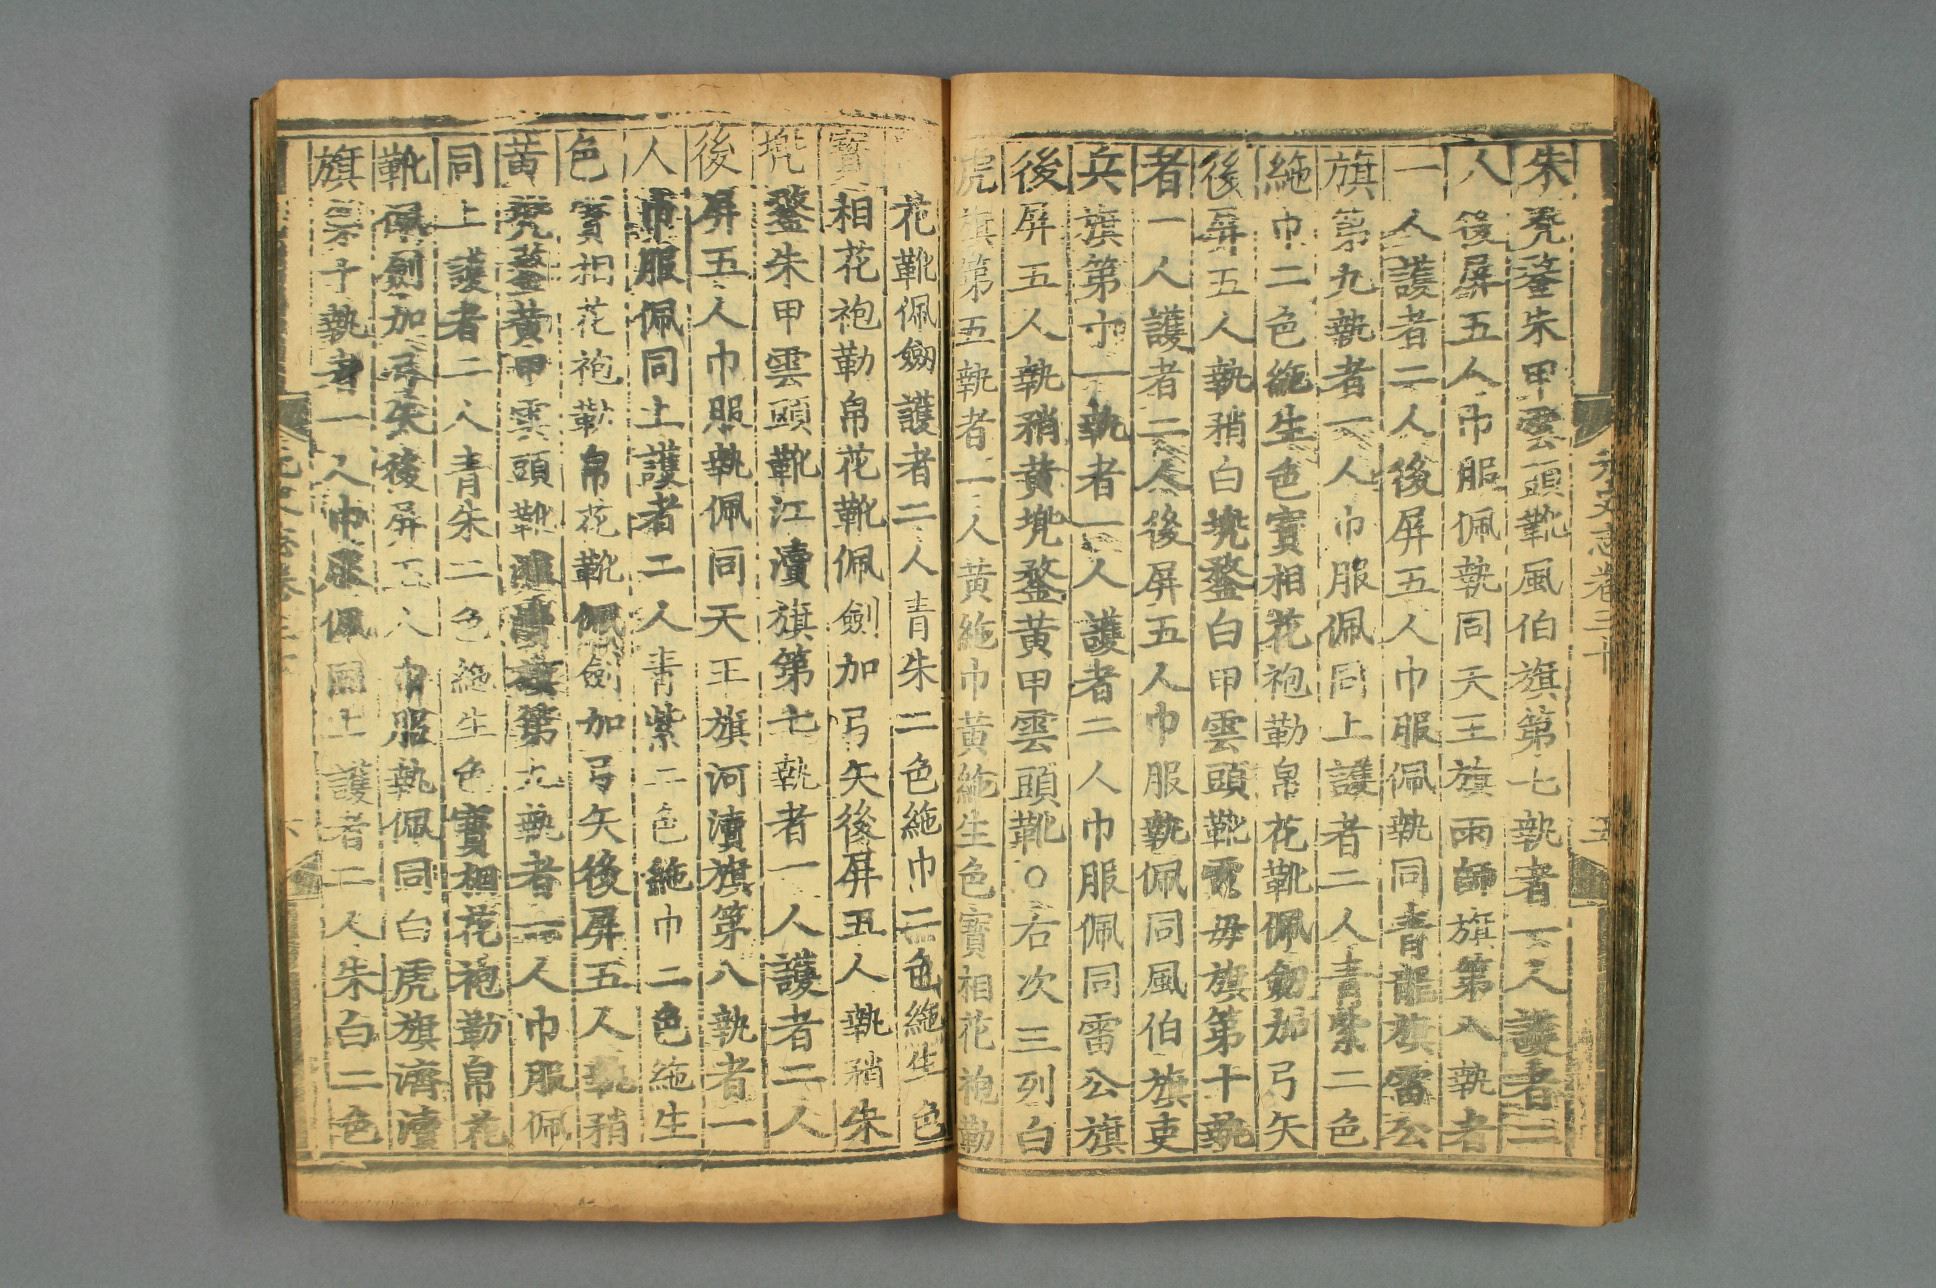 朱兠鍪朱甲雲頭靴風伯旗第七執者一人護者二
人後屏五人巾服佩執同天王旗雨師旗第八執者
一人護者二人後屏五人巾服佩執同青龍旗雷公
旗第九執者一人巾服佩同上護者二人青紫二色
絁巾二色絁生色寶相花袍勒帛花靴佩劒加弓矢
後屏五人執矟白兠鍪白甲雲頭靴電毋旗第十執
者一人護者二人後屏五人巾服執佩同風伯旗吏
兵旗第十一執者一人護者二人巾服佩同雷公旗
後屏五人執矟黄兠鍪黄甲雲頭靴○右次三列白
虎旗第五執者一人黄絁巾黄絁生色寶相花袍勒
花靴佩劒護者二人青朱二色絁巾二色絁生色
寶相花袍勒帛花靴佩劍加弓矢後屏五人執矟朱
兠鍪朱甲雲頭靴江瀆旗第七執者一人護者二人
後屏五人巾服執佩同天王旗河瀆旗第八執者一
人巾服佩同上護者二人青紫二色絁巾二色絁生
色寶相花袍勒帛花靴佩劍加弓矢後屏五人執矟
黄兠鍪黄甲雲頭靴淮瀆旗第九執者一人巾服佩
同上護者二人青朱二色絁生色寶相花袍勒帛花
靴佩劍加弓矢後屏五人巾服執佩同白虎旗濟瀆
旗第十執者一人巾服佩同上護者二人朱白二色
元史志卷三十
五